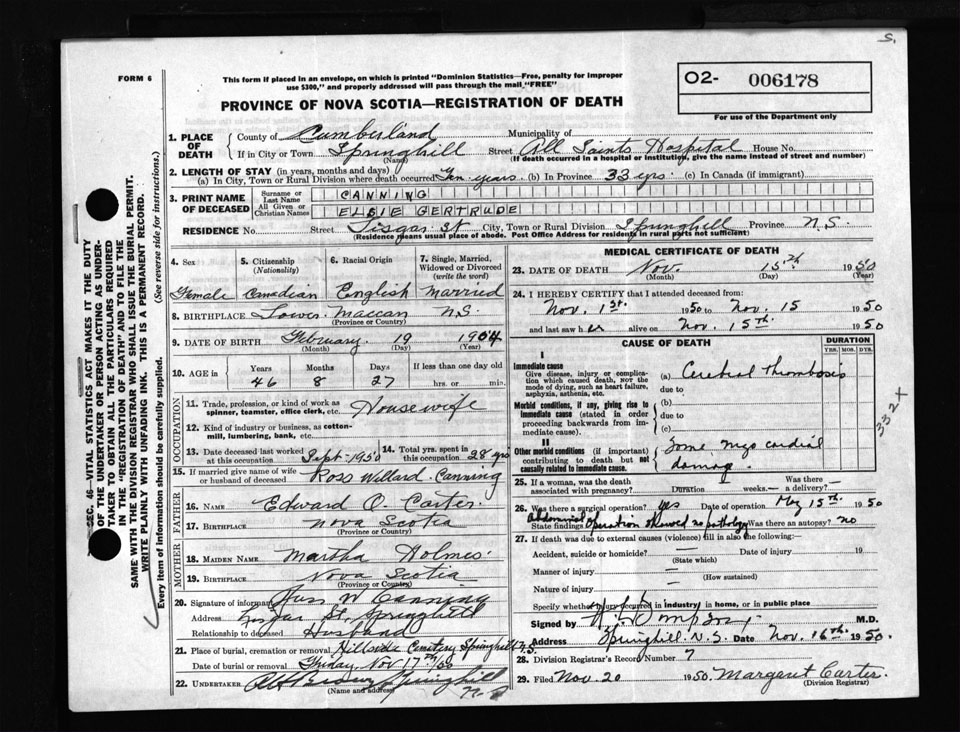 S.
FORM 6
This form if placed in an envelope, on which is printed "Dominion Statistics—Free, penalty for improper
use $300," and properly addressed will pass through the mail "FREE"
PROVINCE OF NOVA SCOTIA—REGISTRATION OF DEATH
O2- 006178
For use of the Department only
1. PLACE OF DEATH
County of Cumberland Municipality of
If in City or Town Springhill Street All Saints Hospital House No.
(Name) (If death occurred in a hospital or institution, give the name instead of street and number)
2. LENGTH OF STAY (in years, months and days)
(a) In City, Town or Rural Division where death occurred Ten years. (b) In Province 33 yrs. (c) In Canada (if immigrant)
3. PRINT NAME OF DECEASED
Surname or Last Name CANNING
All Given or Christian Names ELSIE GERTRUDE
RESIDENCE No. Street Lisgar St City, Town or Rural Division Springhill Province N.S.
(Residence means usual place of abode. Post Office Address for residents in rural parts not sufficient)
4. Sex 5. Citizenship (Nationality) 6. Racial Origin 7. Single, Married, Widowed or Divorced (write the word)
Female Canadian English Married
8. BIRTHPLACE Lower Maccan N.S.
(Province or Country)
9. DATE OF BIRTH February 19 1904
(Month) (Day) (Year)
10. AGE in Years Months Days If less than one day old
46 8 27 hrs. or min.
OCCUPATION
11. Trade, profession, or kind of work as spinner, teamster, office clerk, etc. Housewife
12. Kind of industry or business, as cotton-mill, lumbering, bank, etc.
13. Date deceased last worked at this occupation Sept-1950 14. Total yrs. spent in this occupation 28 yrs
15. If married give name of wife or husband of deceased Ross Willard Canning
FATHER
16. NAME Edward O. Carter
17. BIRTHPLACE Nova Scotia
(Province or Country)
MOTHER
18. MAIDEN NAME Martha Holmes
19. BIRTHPLACE Nova Scotia
(Province or Country)
20. Signature of informant Ross W Canning
Address Lisgar St, Springhill
Relationship to deceased Husband
21. Place of burial, cremation or removal Hillside Cemetery Springhill N.S.
Date of burial or removal Friday Nov 17th/50
22. UNDERTAKER Springhill
(Name and address) N.S.
MEDICAL CERTIFICATE OF DEATH
23. DATE OF DEATH Nov. 15th 1950
(Month) (Day) (Year)
24. I HEREBY CERTIFY that I attended deceased from:
Nov. 1st. 1950 to Nov. 15 1950
and last saw her alive on Nov. 15th 1950
CAUSE OF DEATH
DURATION
YRS. MOS. DYS.
I
Immediate cause
Give disease, injury or complication which caused death, not the mode of dying, such as heart failure, asphyxia, asthenia, etc.
(a) Cerebral Thrombosis
due to
Morbid conditions, if any, giving rise to immediate cause (stated in order proceeding backwards from immediate cause).
(b)
due to
(c)
II
Other morbid conditions (if important) contributing to death but not causally related to immediate cause.
Some myocardial
damag.
332X
25. If a woman, was the death associated with pregnancy? Duration weeks.— Was there a delivery?
26. Was there a surgical operation? yes Date of operation May 15th. 1950
State findings Abdominal operation showed no pathology Was there an autopsy? no
27. If death was due to external causes (violence) fill in also the following:—
Accident, suicide or homicide? Date of injury 19
(State which)
Manner of injury
(How sustained)
Nature of injury
Specify whether injury occurred in industry, in home, or in public place
Signed by M.D.
Address Springhill N.S. Date Nov. 16th. 1950.
28. Division Registrar's Record Number 7
29. Filed Nov. 20 1950. Margaret Carter.
(Division Registrar)
SEC. 46—VITAL STATISTICS ACT MAKES IT THE DUTY
OF THE UNDERTAKER OR PERSON ACTING AS UNDER-
TAKER TO OBTAIN ALL THE PARTICULARS REQUIRED
IN THE "REGISTRATION OF DEATH" AND TO FILE THE
SAME WITH THE DIVISION REGISTRAR WHO SHALL ISSUE THE BURIAL PERMIT.
WRITE PLAINLY WITH UNFADING INK. THIS IS A PERMANENT RECORD.
Every item of information should be carefully supplied. (See reverse side for instructions.)